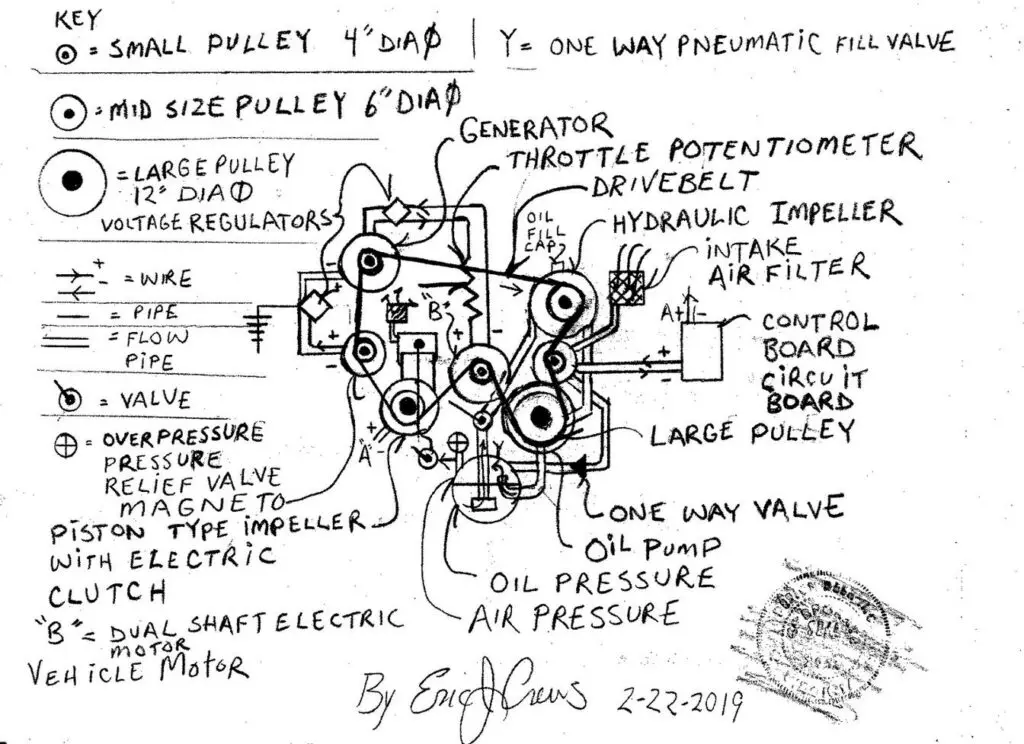 KEY
= SMALL PULLEY 4" DIAØ
Y = ONE WAY PNEUMATIC FILL VALVE
= MID SIZE PULLEY 6" DIAØ
= LARGE PULLEY
12" DIAØ
VOLTAGE REGULATORS
GENERATOR
THROTTLE POTENTIOMETER
DRIVEBELT
OIL
FILL
CAP
HYDRAULIC IMPELLER
INTAKE
AIR FILTER
+
- = WIRE
- = PIPE
= FLOW
PIPE
= VALVE
"B"
A+ -
CONTROL
BOARD
CIRCUIT
BOARD
LARGE PULLEY
"A"
Y
= OVERPRESSURE
PRESSURE
RELIEF VALVE
MAGNETO
PISTON TYPE IMPELLER
WITH ELECTRIC
CLUTCH
ONE WAY VALVE
OIL PUMP
OIL PRESSURE
AIR PRESSURE
"B" = DUAL SHAFT ELECTRIC
MOTOR
VEHICLE MOTOR
By Eric J Crews 2-22-2019